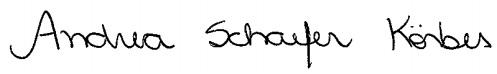 Andrea Schaefer Körbes